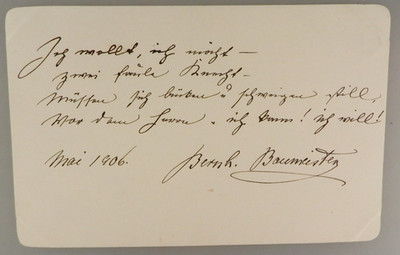 Ich wollt, ich möcht —
zwei faule Knecht —
Müssen sich bücken u schweigen still,
Vor dem Herren „ ich kann! ich will!
Mai 1906. Bernh. Baumeister